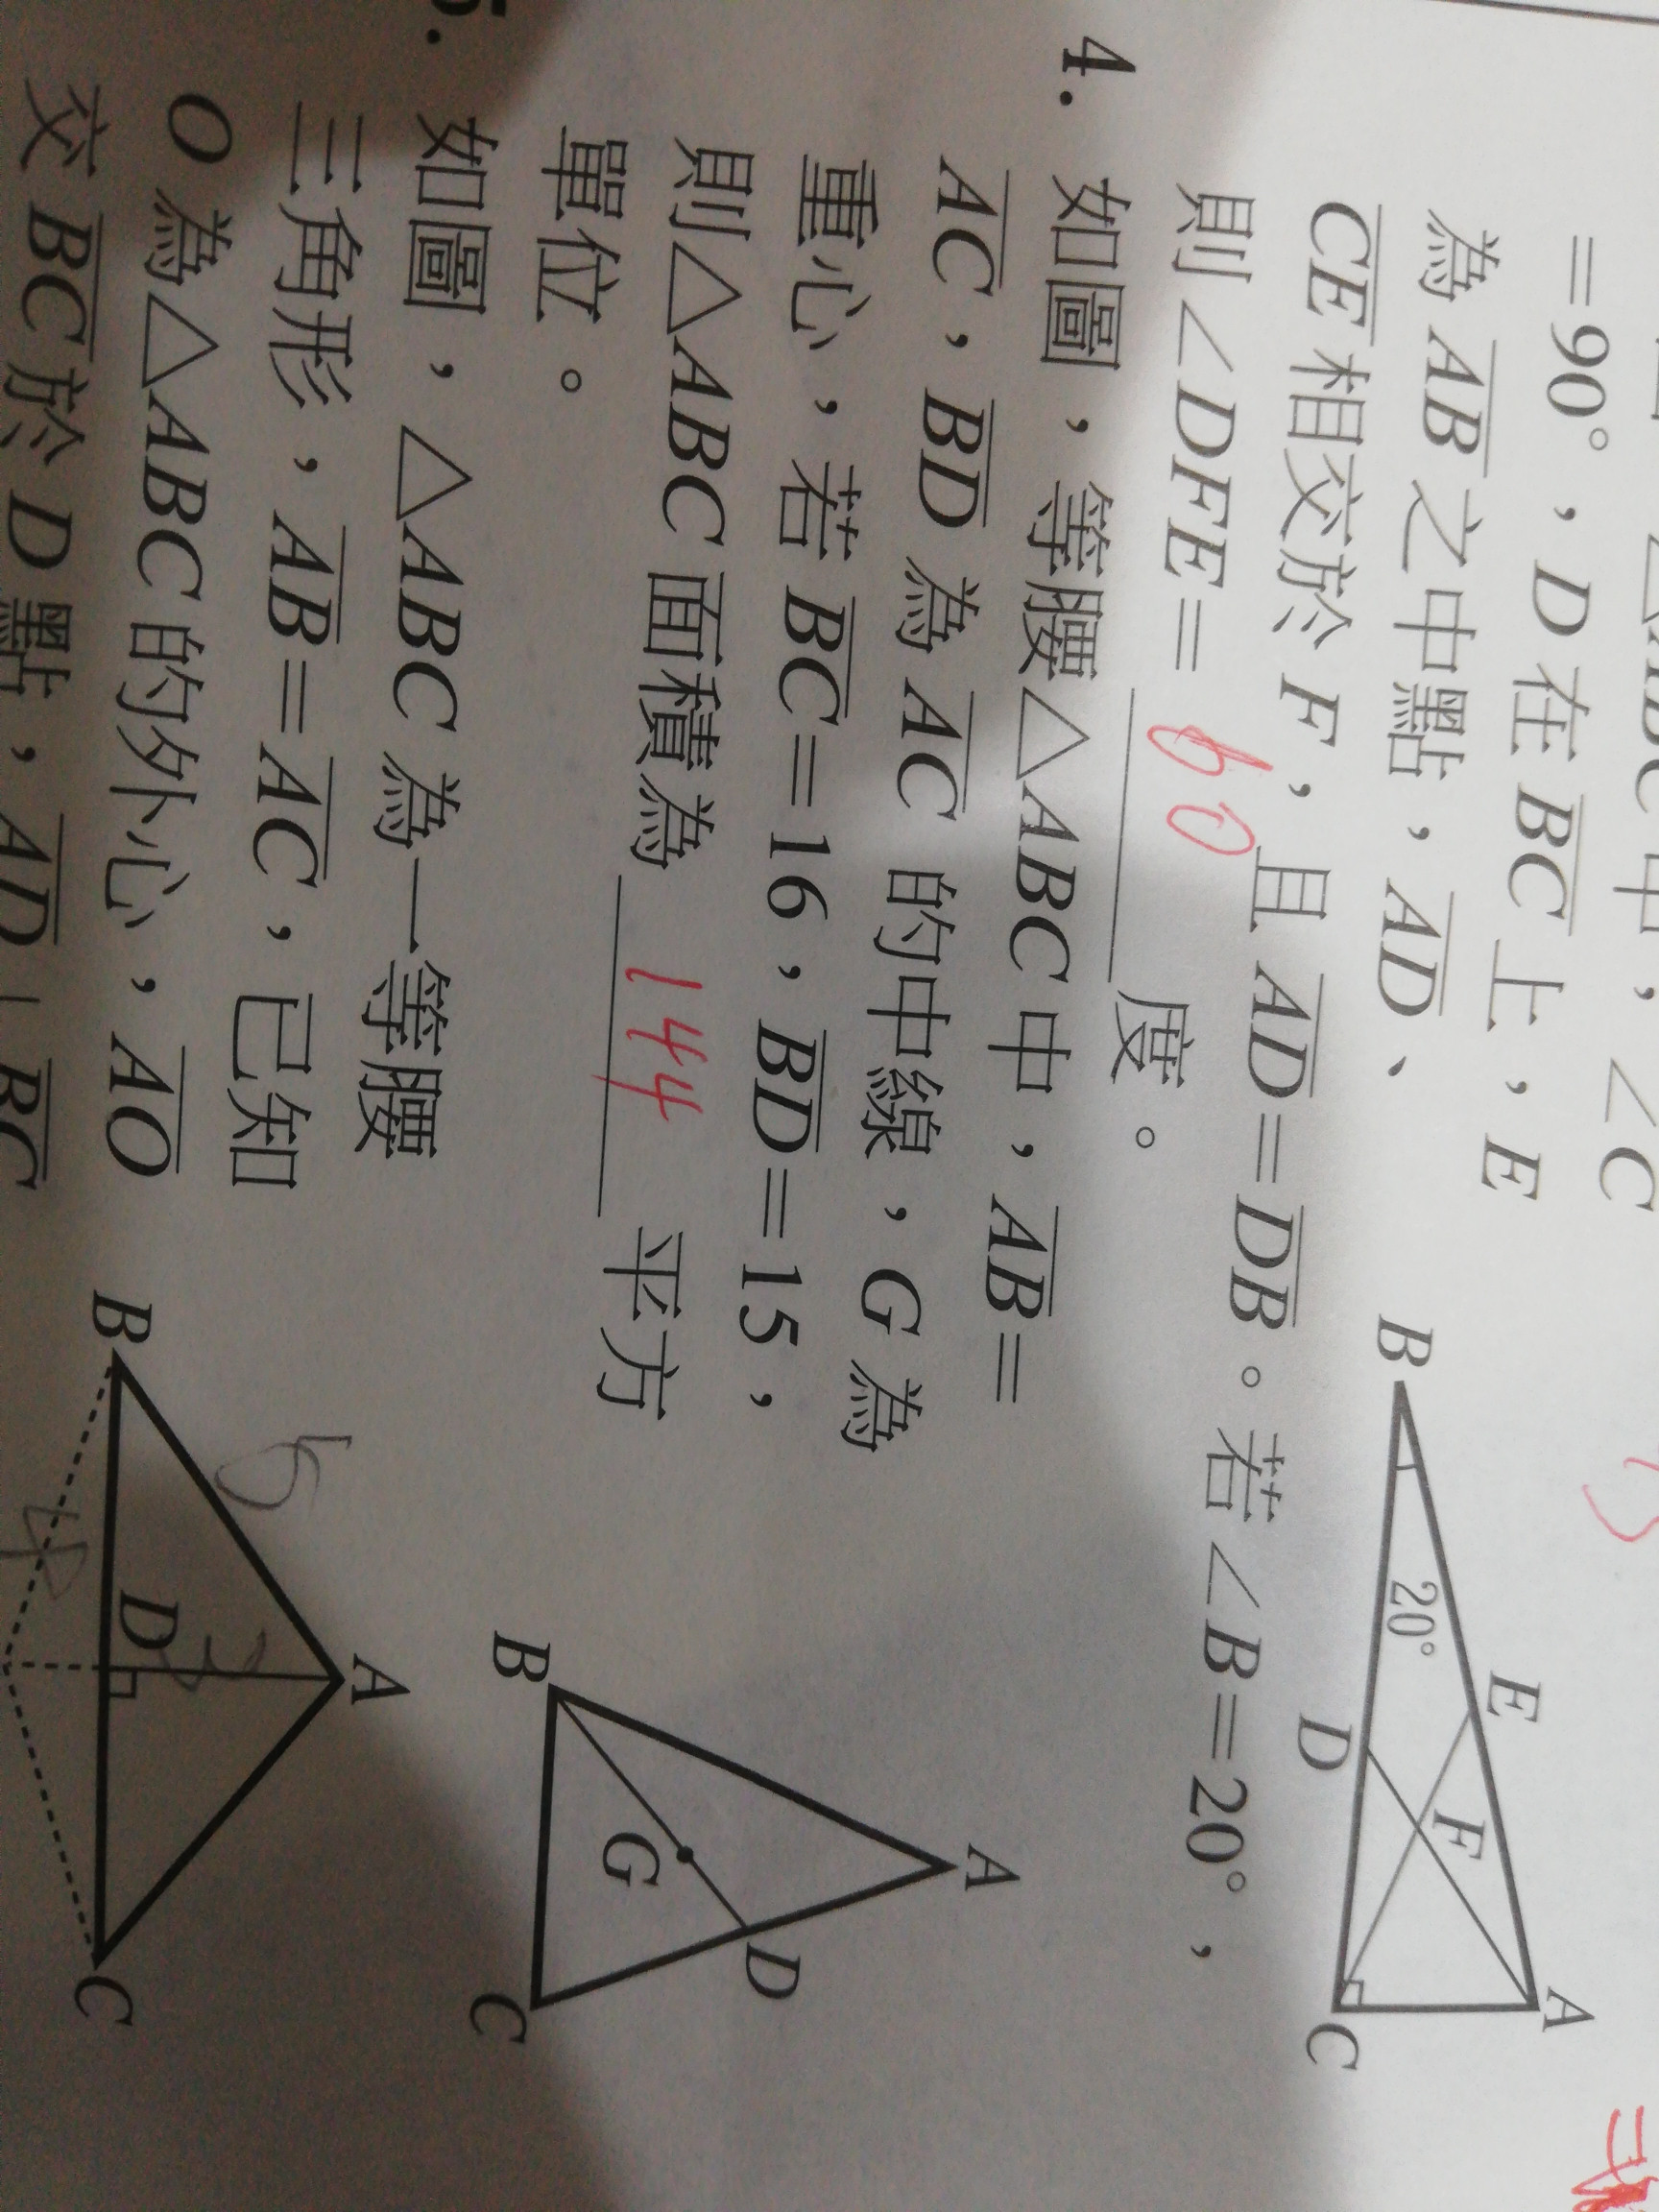 △ABC中，∠C
=90°，D在BC上，E
為AB之中點，AD、
CE相交於F，且AD=DB。若∠B=20°，
則∠DFE= 60 度。
B 20° E D F A C
4. 如圖，等腰△ABC中，AB=
AC，BD為AC的中線，G為
重心，若BC=16，BD=15，
則△ABC面積為 144 平方
單位。
A B G D C
如圖，△ABC為一等腰
三角形，AB=AC，已知
O為△ABC的外心，AO
交BC於D點，AD⊥BC
B A D C 5 4 3